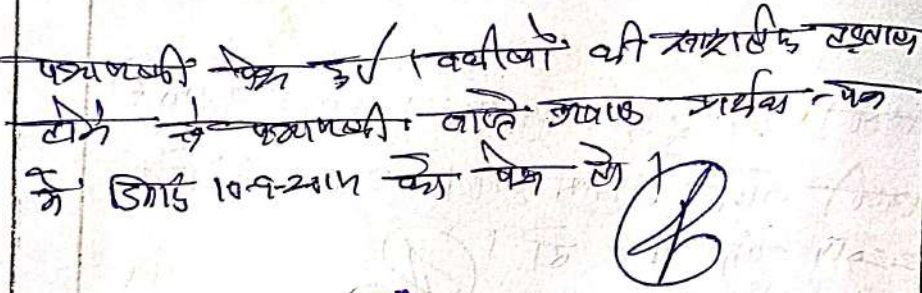 पत्रावली पेश हुई । वकीलों की सांकेतिक हड़ताल
होने से पत्रावली वास्ते जवाब प्रार्थना-पत्र
में दिनांक 10-9-2014 को पेश हो ।